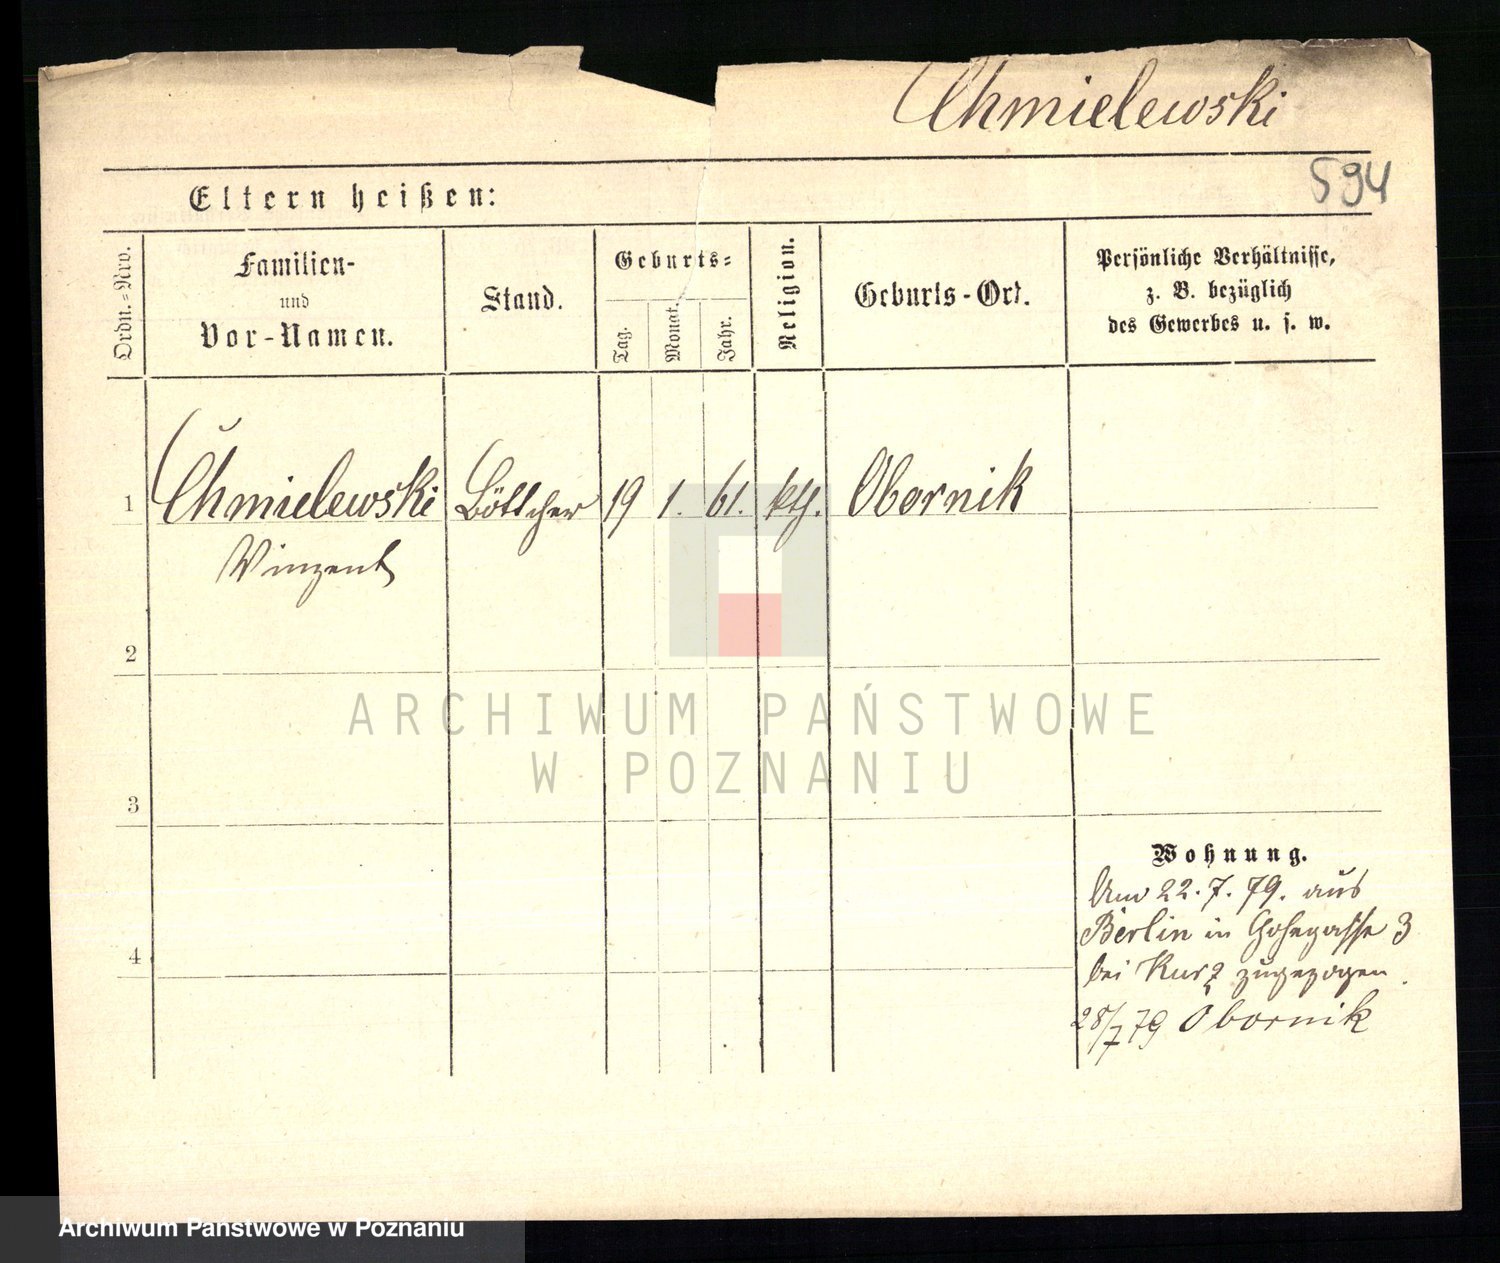 Chmielewski
594
Eltern heißen:
Ordn.=Nro.
Familien-
und
Vor-Namen.
Stand.
Geburts=
Tag.
Monat.
Jahr.
Religion.
Geburts-Ort.
Persönliche Verhältnisse,
z. B. bezüglich
des Gewerbes u. s. w.
1 Chmielewski Böttcher 19 1. 61. kth. Obornik
Vinzent
2
3
4
ARCHIWUM PAŃSTWOWE
W POZNANIU
Wohnung.
Am 22. 7. 79. aus
Berlin in 3
bei Kurz zugezogen.
28/7 79 Obornik
Archiwum Państwowe w Poznaniu